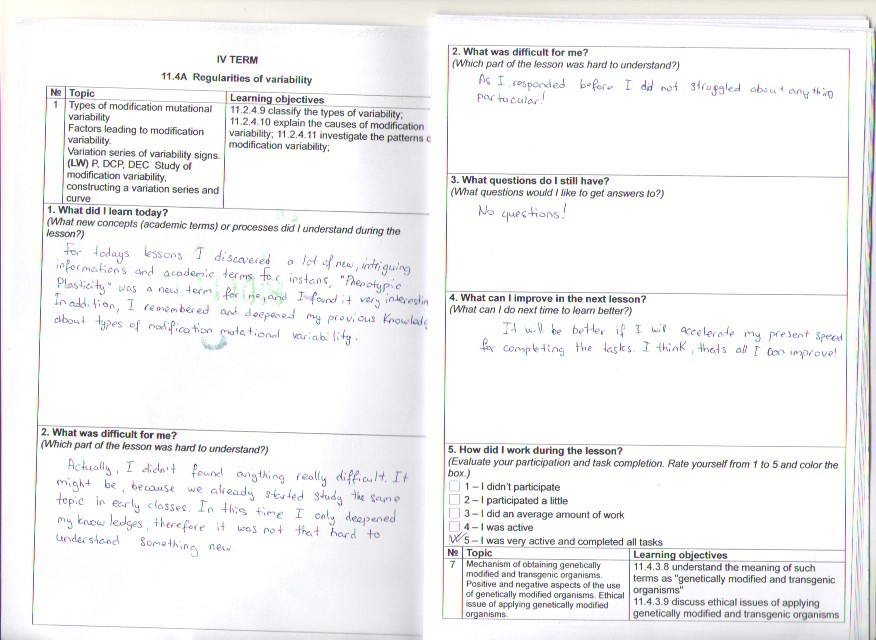 IV TERM
11.4A Regularities of variability
№ Topic
Learning objectives
1 Types of modification mutational
variability
Factors leading to modification
variability.
Variation series of variability signs.
(LW) P, DCP, DEC Study of
modification variability,
constructing a variation series and
curve
11.2.4.9 classify the types of variability;
11.2.4.10 explain the causes of modification
variability; 11.2.4.11 investigate the patterns o
modification variability;
1. What did I learn today?
(What new concepts (academic terms) or processes did I understand during the
lesson?)
For todays lessons I discovered a lot of new, intriguing
informations and academic terms for instans, "Phenotypic
Plasticity" was a new term for me, and I found it very interestin
In addition, I remembered and deepened my previous knowledg
about types of modification mutational variability.
2. What was difficult for me?
(Which part of the lesson was hard to understand?)
Actually, I didn't found anything really difficult. It
might be, because we already started study the same
topic in early classes. In this time I only deepened
my knowledges, therefore it was not that hard to
understand something new
2. What was difficult for me?
(Which part of the lesson was hard to understand?)
As I responded before I did not struggled about anything
partucular!
3. What questions do I still have?
(What questions would I like to get answers to?)
No questions!
4. What can I improve in the next lesson?
(What can I do next time to learn better?)
It will be better if I will accelerate my present speed
for completing the tasks. I think, thats all I can improve!
5. How did I work during the lesson?
(Evaluate your participation and task completion. Rate yourself from 1 to 5 and color the
box.)
1 – I didn't participate
2 – I participated a little
3 – I did an average amount of work
4 – I was active
5 – I was very active and completed all tasks
№ Topic
Learning objectives
7 Mechanism of obtaining genetically
modified and transgenic organisms.
Positive and negative aspects of the use
of genetically modified organisms. Ethical
issue of applying genetically modified
organisms.
11.4.3.8 understand the meaning of such
terms as "genetically modified and transgenic
organisms"
11.4.3.9 discuss ethical issues of applying
genetically modified and transgenic organisms